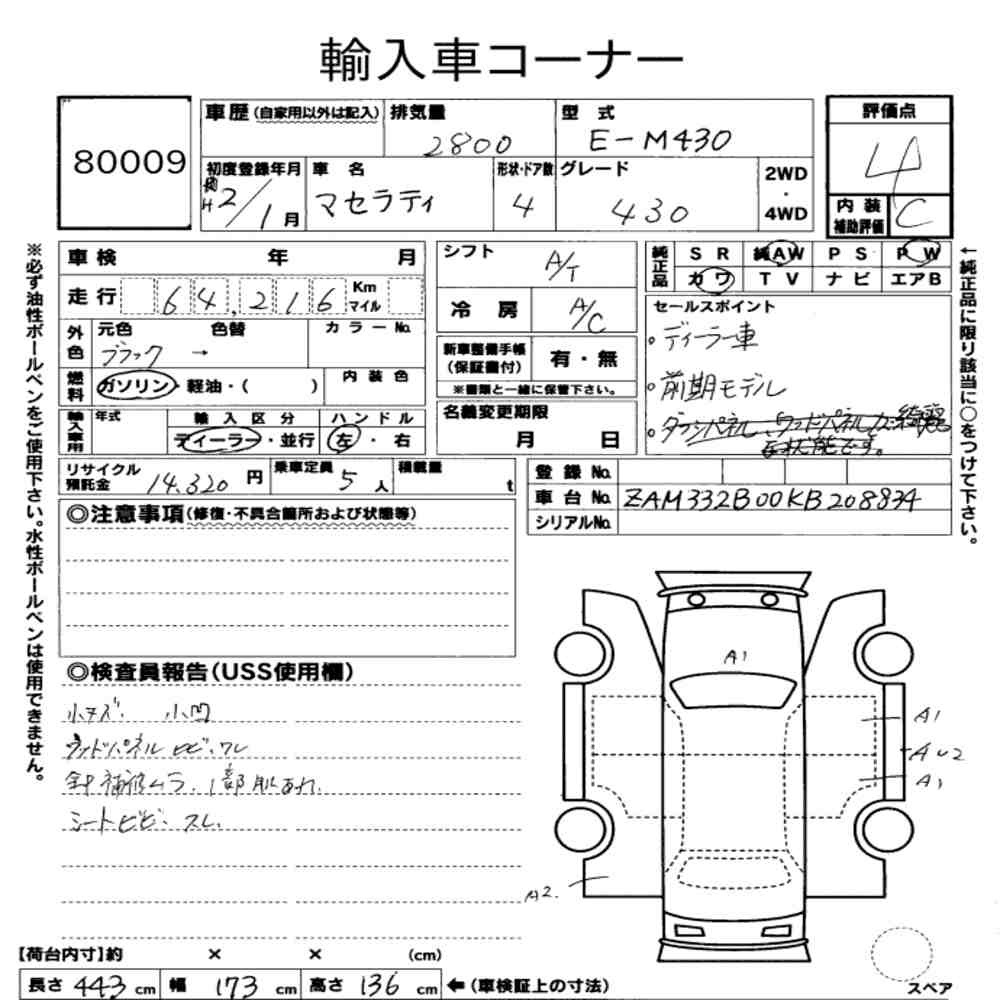 輸入車コーナー
80009
車歴(自家用以外は記入) 排気量 2800 型式 E-M430
初度登録年月 H2/1月 車名 マセラティ 形状・ドア数 4 グレード 430 2WD・4WD
評価点 4
内装補助評価 C
車検 年 月
走行 64,216 Km マイル
外色 元色 ブラック 色替 → カラーNo.
燃料 ガソリン・軽油・( ) 内装色
輸入車用 年式 輸入区分 ディーラー・並行 ハンドル 左・右
リサイクル預託金 14,320円 乗車定員 5人 積載量 t
シフト A/T
冷房 A/C
新車整備手帳(保証書付) 有・無
※書類と一緒に保管下さい。
名義変更期限 月 日
純正品 SR 純AW PS PW
カワ TV ナビ エアB
セールスポイント
・ディーラー車
・前期モデル
・ダッシュパネル、ウッドパネル 綺麗
な状態です。
登録No.
車台No. ZAM332B00KB208834
シリアルNo.
※必ず油性ボールペンをご使用下さい。水性ボールペンは使用できません。
←純正品に限り該当に○をつけて下さい。
◎注意事項(修復・不具合箇所および状態等)
◎検査員報告(USS使用欄)
小キズ. 小凹
ウッドパネル ヒビ・ワレ
針補修ムラ. 1部肌あれ.
シートヒビ・スレ.
A1
A1
AU2
A1
A2.
スペア
【荷台内寸】約 × × (cm)
長さ 443 cm 幅 173 cm 高さ 136 cm ←(車検証上の寸法)